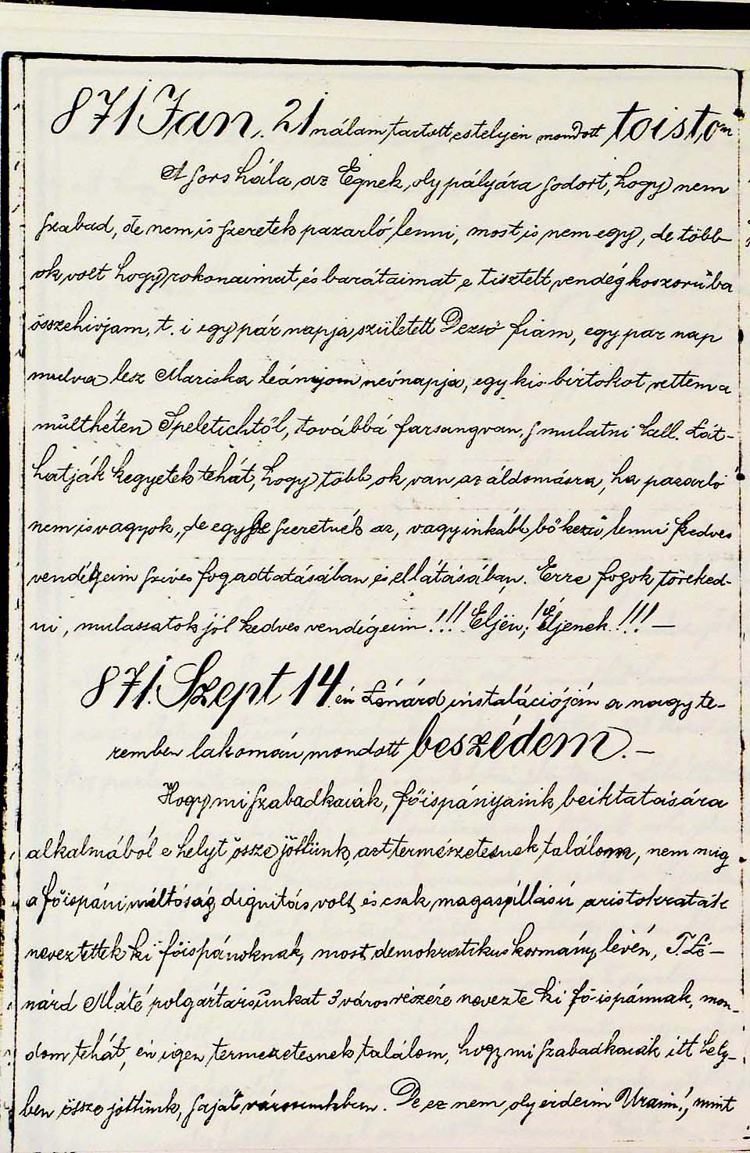 871 Jan. 21 nálam tartott estélyen mondott toisto
A sors hála, az Égnek, oly pályára sodort, hogy nem
szabad, de nem is szeretek pazarló lenni, most is nem egy, de több
ok volt hogy rokonaimat és barátaimat e tisztelt vendég koszorúba
összehivjam, t. i egy pár napja született Dezső fiam, egy par nap
mulva lesz Mariska leányom névnapja, egy kis birtokot vettem a
múlthéten Speletichtől, továbbá farsang van, s mulatni kell. Lát-
hatják kegyetek tehát, hogy több ok van az áldomásra, ha pazarló
nem is vagyok, de egyre szeretnék az, vagy inkább bőkezű lenni kedves
vendégeim szives fogadtatásában és ellátásában. Erre fogok töreked-
ni, mulassatok jól kedves vendégeim!!! Éljen! Éljenek!!! —
871. Szept 14 én Lénárd instalációján a nagy te-
remben lakomán mondott beszédem. —
Hogy mi szabadkaiak, főispányaink beiktatására
alkalmából e helyt össze jöttünk, azt természetesnek találom, nem mig
a főispáni méltóság dignitás volt, és csak magasállású aristokraták
neveztettek ki főispánoknak, most demokratikus kormány lévén, T. Lé-
nárd Máté polgártársunkat 3 város részére nevezte ki fő-ispánnak, mon-
dom tehát, én igen termezetesnek találom, hogy mi szabadkaiak itt hely-
ben össze jöttünk, saját városunkban. De ez nem oly érdem Uraim!, mint